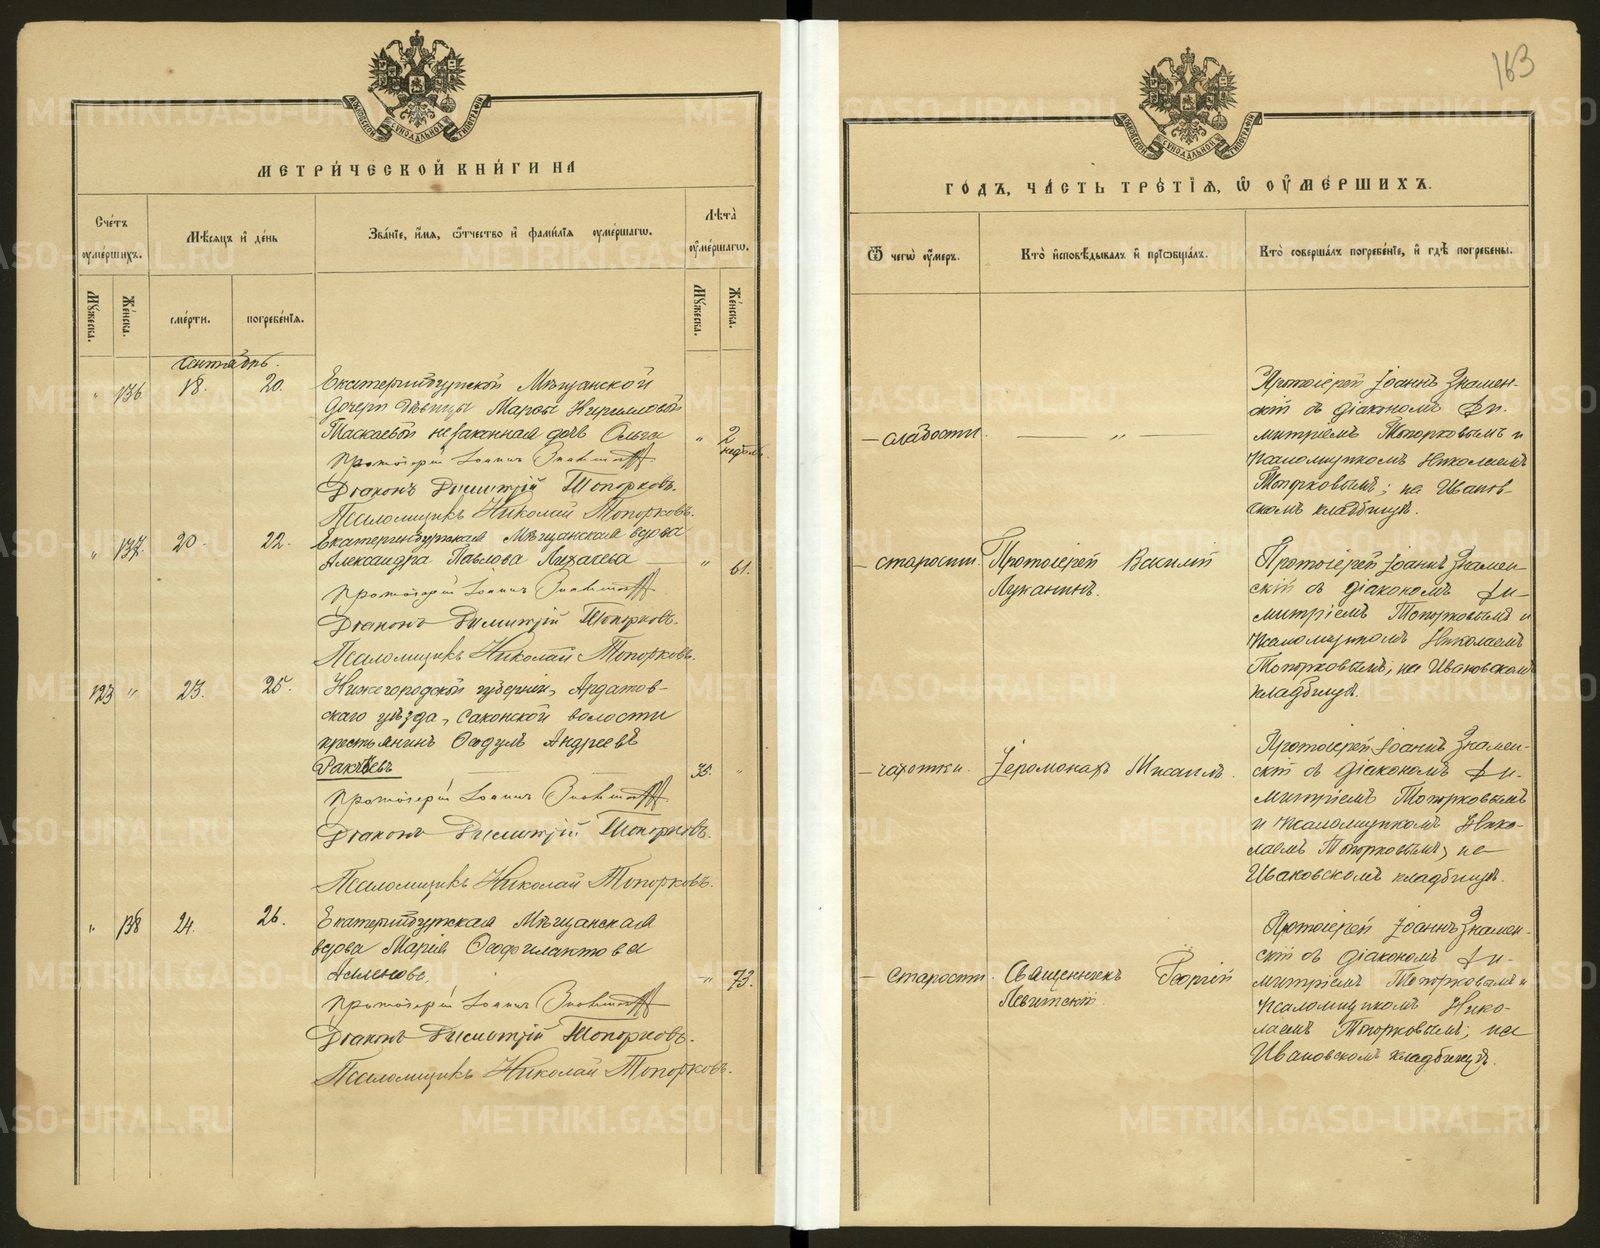 163
МЕТРИ́ЧЕСКОЙ КНИ́ГИ НА
Сче́тъ
оуме́ршихъ.
Мѣ́сяцъ и҆ де́нь
Зва́нїе, и҆́мя, ѻ҆́тчество и҆ фами́лїя оуме́ршагѡ.
Лѣта̀
оуме́ршагѡ.
Мꙋ́жеска.
Же́нска.
сме́рти.
погребе́нїя.
Мꙋ́жеска.
Же́нска.
Сентябрь.
" 136 18. 20. Екатеринбургской Мѣщанской
дочери дѣвицы Марѳы Кириловой
Таскаевой незаконная дочь Ольга " 2 недѣль.
Протоіерей Іоаннъ Знаменскій
Діаконъ Димитрій Топорковъ.
Псаломщикъ Николай Топорковъ.
" 137. 20. 22. Екатеринбургская Мѣщанская вдова
Александра Павлова — " 61.
Протоіерей Іоаннъ Знаменскій
Діаконъ Димитрій Топорковъ.
Псаломщикъ Николай Топорковъ.
123 " 23. 25. Нижегородской губерніи, Ардатов-
скаго уѣзда, Саконской волости
крестьянинъ Ѳеодулъ Андреевъ
Ракѣевъ 35. "
Протоіерей Іоаннъ Знаменскій
Діаконъ Димитрій Топорковъ.
Псаломщикъ Николай Топорковъ.
" 138 24. 26. Екатеринбургская Мѣщанская
вдова Марія Ѳеофилактова
" 73.
Протоіерей Іоаннъ Знаменскій
Діаконъ Димитрій Топорковъ.
Псаломщикъ Николай Топорковъ.
ГО́ДЪ, ЧА́СТЬ ТРЕ́ТЇЯ, Ѡ҆ ОУМЕ́РШИХЪ.
Ѿ чегѡ̀ оу́меръ.
Кто̀ и҆сповѣ́дывалъ и҆ прїѻбща́лъ.
Кто̀ соверша́лъ погребе́нїе, и҆ гдѣ̀ погребены̀.
— слабости. — " —
Протоіерей Іоаннъ Знамен-
скій съ діакономъ Ди-
митріемъ Топорковымъ и
Псаломщикомъ Николаемъ
Топорковымъ; на Иванов-
скомъ кладбищѣ.
— старости. Протоіерей Василій
Луканинъ.
Протоіерей Іоаннъ Знамен-
скій съ діакономъ Ди-
митріемъ Топорковымъ и
Псаломщикомъ Николаемъ
Топорковымъ, на Ивановскомъ
кладбищѣ.
— чахотки. Іеромонахъ Мисаилъ.
Протоіерей Іоаннъ Знамен-
скій съ діакономъ Ди-
митріемъ Топорковымъ
и Псаломщикомъ Нико-
лаемъ Топорковымъ, на
Ивановскомъ кладбищѣ.
— Старости. Священникъ Георгій
Левитскій.
Протоіерей Іоаннъ Знамен-
скій съ діакономъ Ди-
митріемъ Топорковымъ и
Псаломщикомъ Нико-
лаемъ Топорковымъ; на
Ивановскомъ кладбищѣ.
METRIKI.GASO-URAL.RU